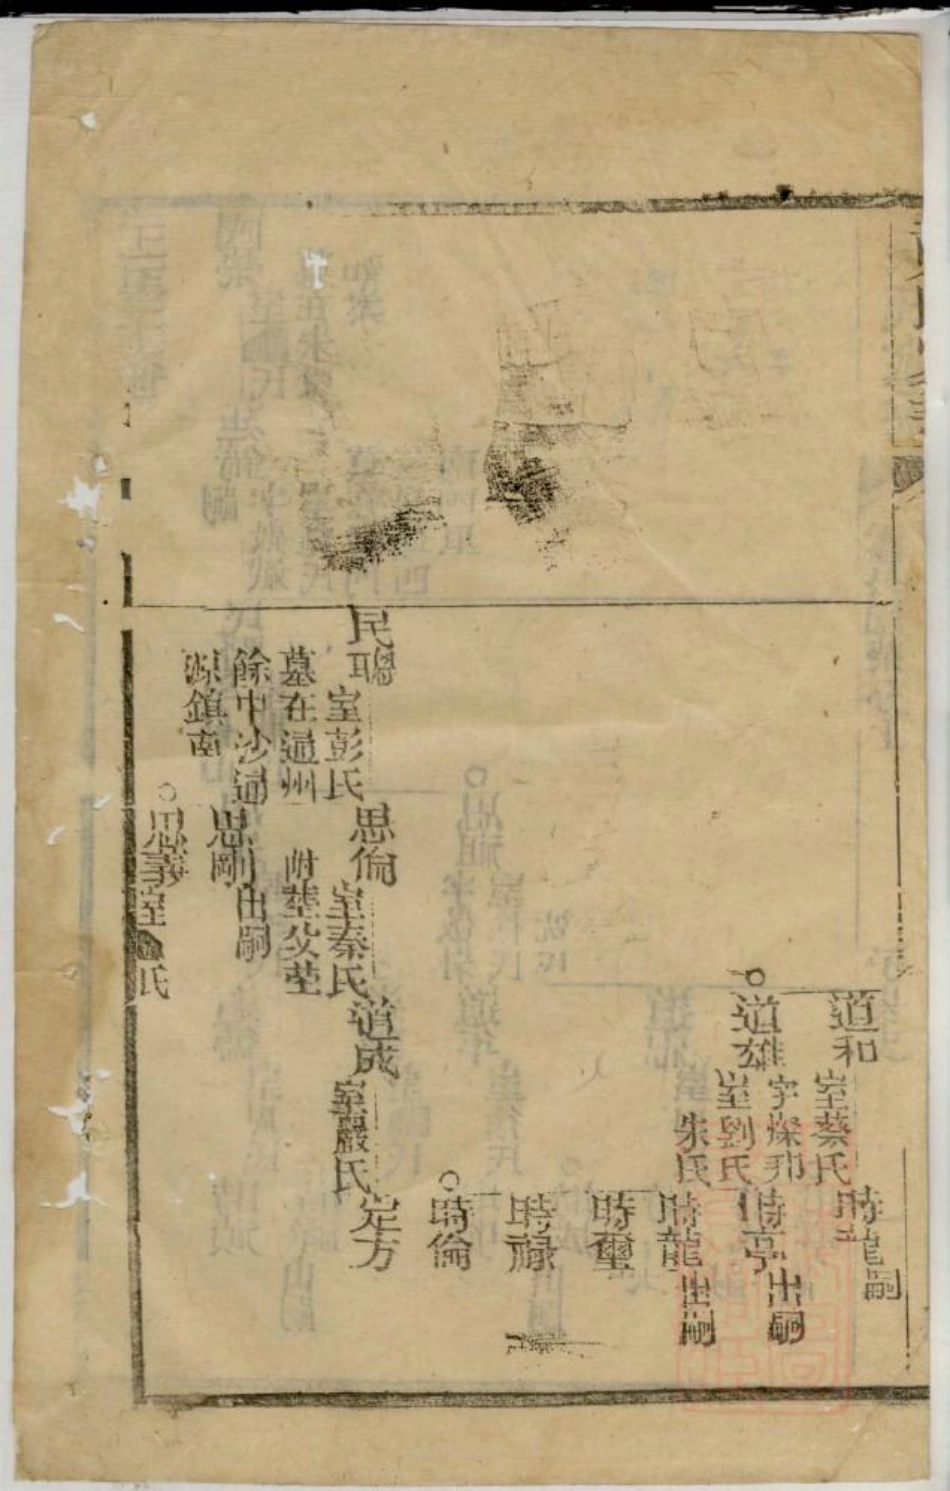 道和
室蔡氏
時龍嗣
道雄
字燦邦
室劉氏
朱氏
時亨出嗣
時龍出嗣
時璽
時祿
時倫
民聰
室彭氏
墓在通州
餘中沙通
源鎮南
思倫
室秦氏
附塟父塋
道成
室嚴氏
定方
思剛出嗣
思義室 氏